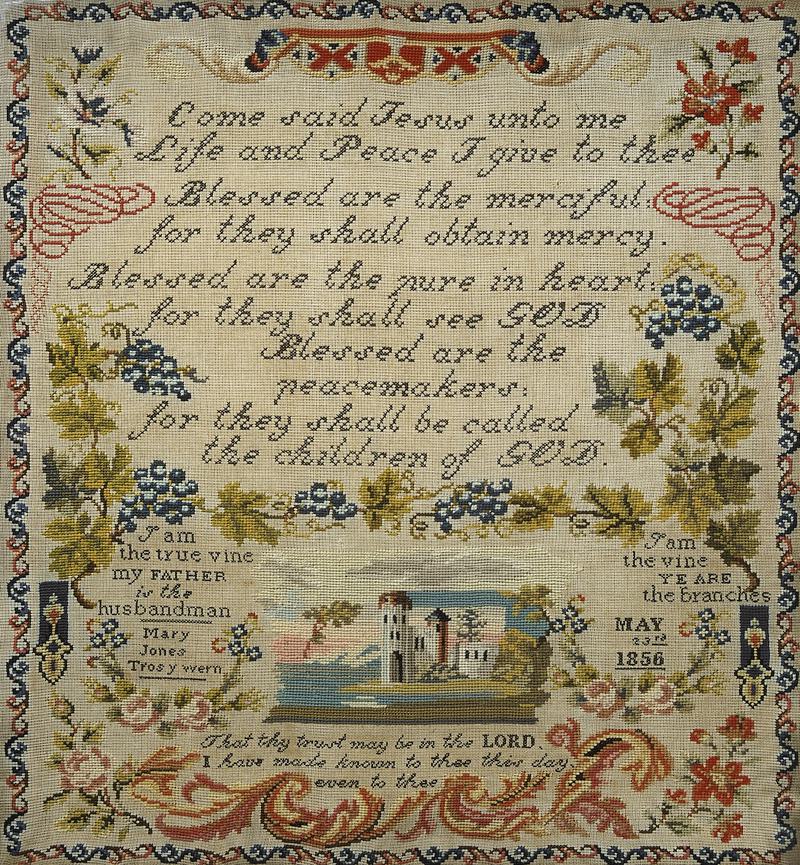 Come said Jesus unto me
Life and Peace I give to thee
Blessed are the merciful:
for they shall obtain mercy.
Blessed are the pure in heart:
for they shall see GOD
Blessed are the
peacemakers:
for they shall be called
the children of GOD.
I am
the true vine
my FATHER
is the
husbandman
Mary
Jones
Tros y wern
I am
the vine
YE ARE
the branches
MAY
23rd
1856
That thy trust may be in the LORD,
I have made known to thee this day,
even to thee